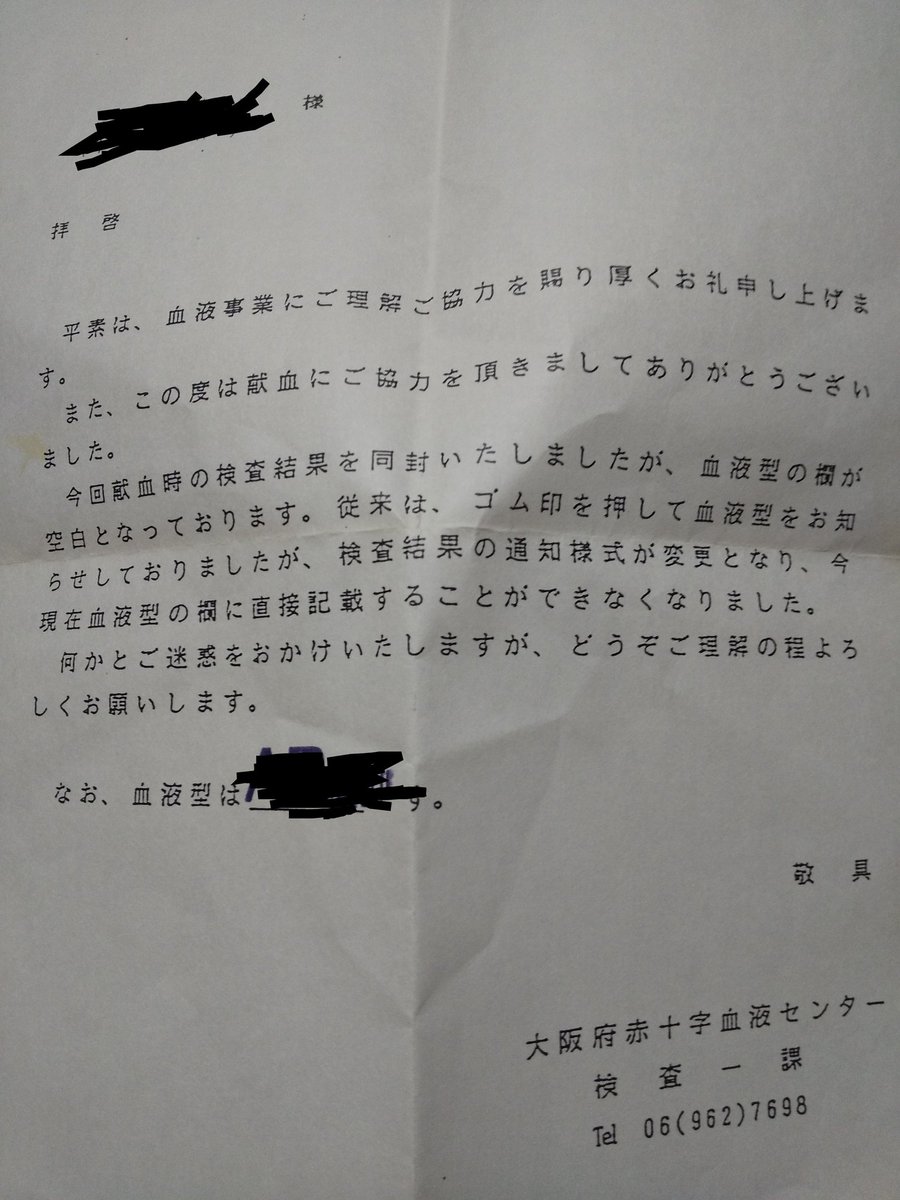 様
拝啓
平素は、血液事業にご理解ご協力を賜り厚くお礼申し上げま
す。
また、この度は献血にご協力を頂きましてありがとうござい
ました。
今回献血時の検査結果を同封いたしましたが、血液型の欄が
空白となっております。従来は、ゴム印を押して血液型をお知
らせしておりましたが、検査結果の通知様式が変更となり、今
現在血液型の欄に直接記載することができなくなりました。
何かとご迷惑をおかけいたしますが、どうぞご理解の程よろ
しくお願いします。
なお、血液型は す。
敬具
大阪府赤十字血液センター
検査一課
Tel 06(962)7698